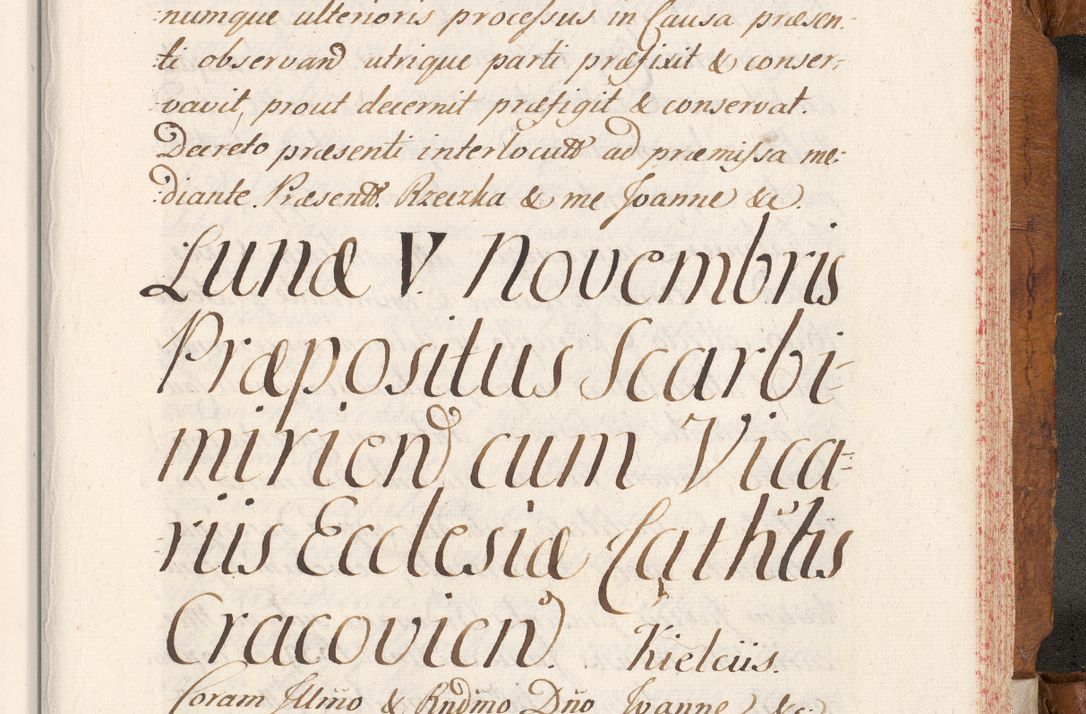 numque ulterioris processus in Causa præsen-
ti observand utrique parti præfixit & conser-
vavit, prout decernit præfigit & conservat.
Decreto præsenti interlocutt ad præmissa me-
diante. Præsentt. Rzeczka & me Joanne &c.
Lunæ V. Novembris
Præpositus Scarbi-
mirien cum Vica-
riis Ecclesiæ Cathlis
Cracovien. Kielciis.
Coram Illmo & Rndmo Dno Joanne &c: